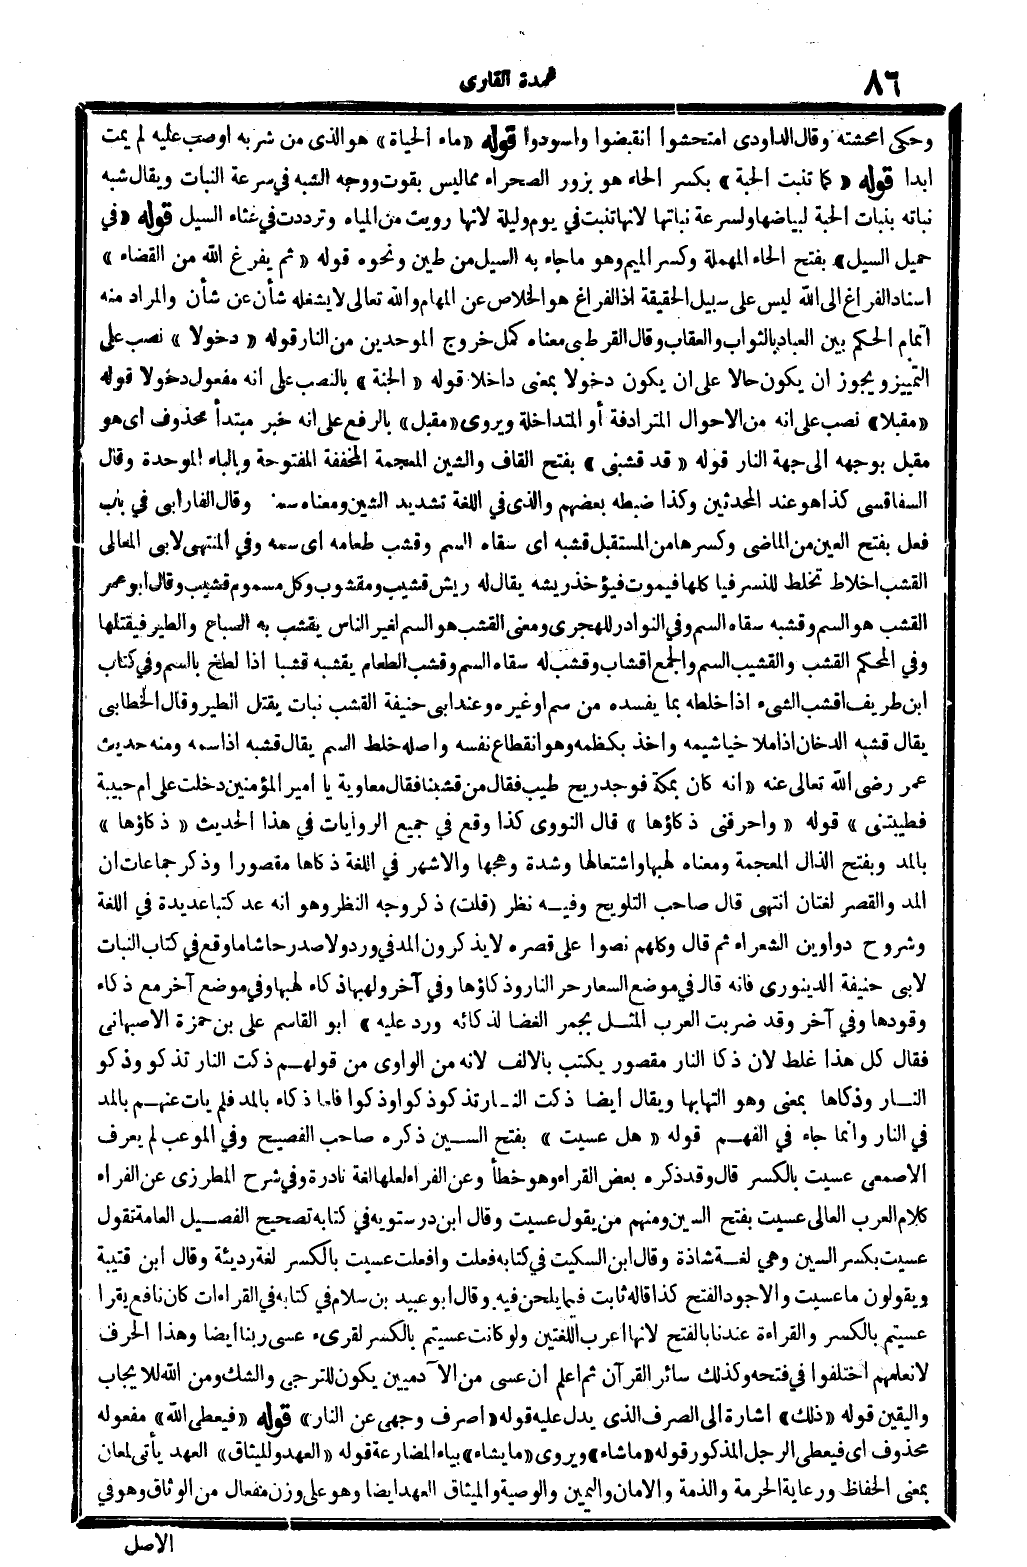 ٨٦
عمدة القارى
وحكى امحشته وقال الداودى امتحشوا انقبضوا واسودوا قوله «ماء الحياة» هو الذى من شربه اوصب عليه لم يمت
ابدا قوله «كما تنبت الحبة» بكسر الحاء هو بزور الصحراء مماليس بقوت ووجه الشبه فى سرعة النبات ويقال شبه
نباته بنبات الحبة لبياضها ولسرعة نباتها لانها تنبت في يوم وليلة لانها رويت من المياه وترددت في غثاء السيل قوله «في
حميل السيل» بفتح الحاء المهملة وكسر الميم وهو ماجاء به السيل من طين ونحوه قوله «ثم يفرغ الله من القضاء»
اسناد الفراغ الى الله ليس على سبيل الحقيقة اذ الفراغ هو الخلاص عن المهام والله تعالى لا يشغله شأن عن شأن والمراد منه
اتمام الحكم بين العباد بالثواب والعقاب وقال القرطبى معناه كمل خروج الموحدين من النار قوله «دخولا» نصب على
التمييز ويجوز ان يكون حالا على ان يكون دخولا بمعنى داخلا قوله «الجنة» بالنصب على انه مفعول دخولا قوله
«مقبلا» نصب على انه من الاحوال المترادفة أو المتداخلة ويروى «مقبل» بالرفع على انه خبر مبتدأ محذوف اى هو
مقبل بوجهه الى جهة النار قوله «قد قشبنى» بفتح القاف والشين المعجمة المخففة المفتوحة وبالباء الموحدة وقال
السفاقسى كذا هو عند المحدثين وكذا ضبطه بعضهم والذى في اللغة تشديد الشين ومعناه سمنى وقال الفارابى في باب
فعل بفتح العين من الماضى وكسرها من المستقبل قشبه اى سقاه السم وقشب طعامه اى سمه وفي المنتهى لابى المعالى
القشب اخلاط تخلط للنسر فيا كلها فيموت فيؤخذ ريشه يقال له ريش قشيب ومقشوب وكل مسموم قشيب وقال ابو عمر
القشب هو السم وقشبه سقاه السم وفي النوادر للهجرى ومعنى القشب هو السم لغير الناس يقشب به السباع والطير فيقتلها
وفي المحكم القشب والقشيب السم والجمع اقشاب وقشب له سقاه السم وقشب الطعام يقشبه قشبا اذا لطخ بالسم وفي كتاب
ابن طريف اقشب الشىء اذا خلطه بما يفسده من سم اوغيره وعند ابى حنيفة القشب نبات يقتل الطير وقال الخطابى
يقال قشبه الدخان اذا ملا خياشيمه واخذ بكظمه وهو انقطاع نفسه واصله خلط السم يقال قشبه اذا سمه ومنه حديث
عمر رضى الله تعالى عنه «انه كان بمكة فوجد ريح طيب فقال من قشبنا فقال معاوية يا امير المؤمنين دخلت على ام حبيبة
فطيبتنى» قوله «واحرقنى ذكاؤها» قال النووى كذا وقع في جميع الروايات في هذا الحديث «ذكاؤها»
بالمد وبفتح الذال المعجمة ومعناه لهبها واشتعالها وشدة وهجها والاشهر في اللغة ذكاها مقصورا وذكر جماعات ان
المد والقصر لغتان انتهى قال صاحب التلويح وفيه نظر (قلت) ذكر وجه النظر وهو انه عد كتبا عديدة في اللغة
وشروح دواوين الشعراء ثم قال وكلهم نصوا على قصره لا يذكرون المد في ورد ولا صدر حاشا ما وقع في كتاب النبات
لابى حنيفة الدينورى فانه قال في موضع السعار حر النار وذكاؤها وفي آخر ولهبها ذكاء لهبها وفي موضع آخر مع ذكاء
وقودها وفي آخر وقد ضربت العرب المثل بجمر الغضا لذكائه ورد عليه» ابو القاسم على بن حمزة الاصبهانى
فقال كل هذا غلط لان ذكا النار مقصور يكتب بالالف لانه من الواوى من قولهم ذكت النار تذكو وذكو
النار وذكاها بمعنى وهو التهابها ويقال ايضا ذكت النار تذكو ذكوا وذكوا فاما ذكاء بالمد فلم يات عنهم بالمد
في النار وانما جاء في الفهم قوله «هل عسيت» بفتح السين ذكره صاحب الفصيح وفي الموعب لم يعرف
الاصمعى عسيت بالكسر قال وقد ذكره بعض القراء وهو خطأ وعن الفراء لعلها لغة نادرة وفي شرح المطرزى عن الفراء
كلام العرب العالى عسيت بفتح السين ومنهم من يقول عسيت وقال ابن درستويه في كتابه تصحيح الفصيل العامة تقول
عسيت بكسر السين وهي لغة شاذة وقال ابن السكيت في كتابه فعلت وافعلت عسيت بالكسر لغة رديئة وقال ابن قتيبة
ويقولون ما عسيت والاجود الفتح كذا قاله ثابت فيما يلحن فيه وقال ابو عبيد بن سلام في كتابه في القراءات كان نافع يقرا
عسيتم بالكسر والقراءة عندنا بالفتح لانها اعرب اللغتين ولو كانت عسيتم بالكسر لقرىء عسى ربنا ايضا وهذا الحرف
لا نعلمهم اختلفوا في فتحه وكذلك سائر القرآن ثم اعلم ان عسى من الآدميين يكون للترجى والشك ومن الله للايجاب
واليقين قوله «ذلك» اشارة الى الصرف الذى يدل عليه قوله «اصرف وجهى عن النار» قوله «فيعطى الله» مفعوله
محذوف اى فيعطى الرجل المذكور قوله «ما شاء» ويروى «ما يشاء» بياء المضارعة قوله «العهد والميثاق» العهد يأتى لمعان
بمعنى الحفاظ ورعاية الحرمة والذمة والامان واليمين والوصية والميثاق العهد ايضا وهو على وزن مفعال من الوثاق وهو في
الاصل